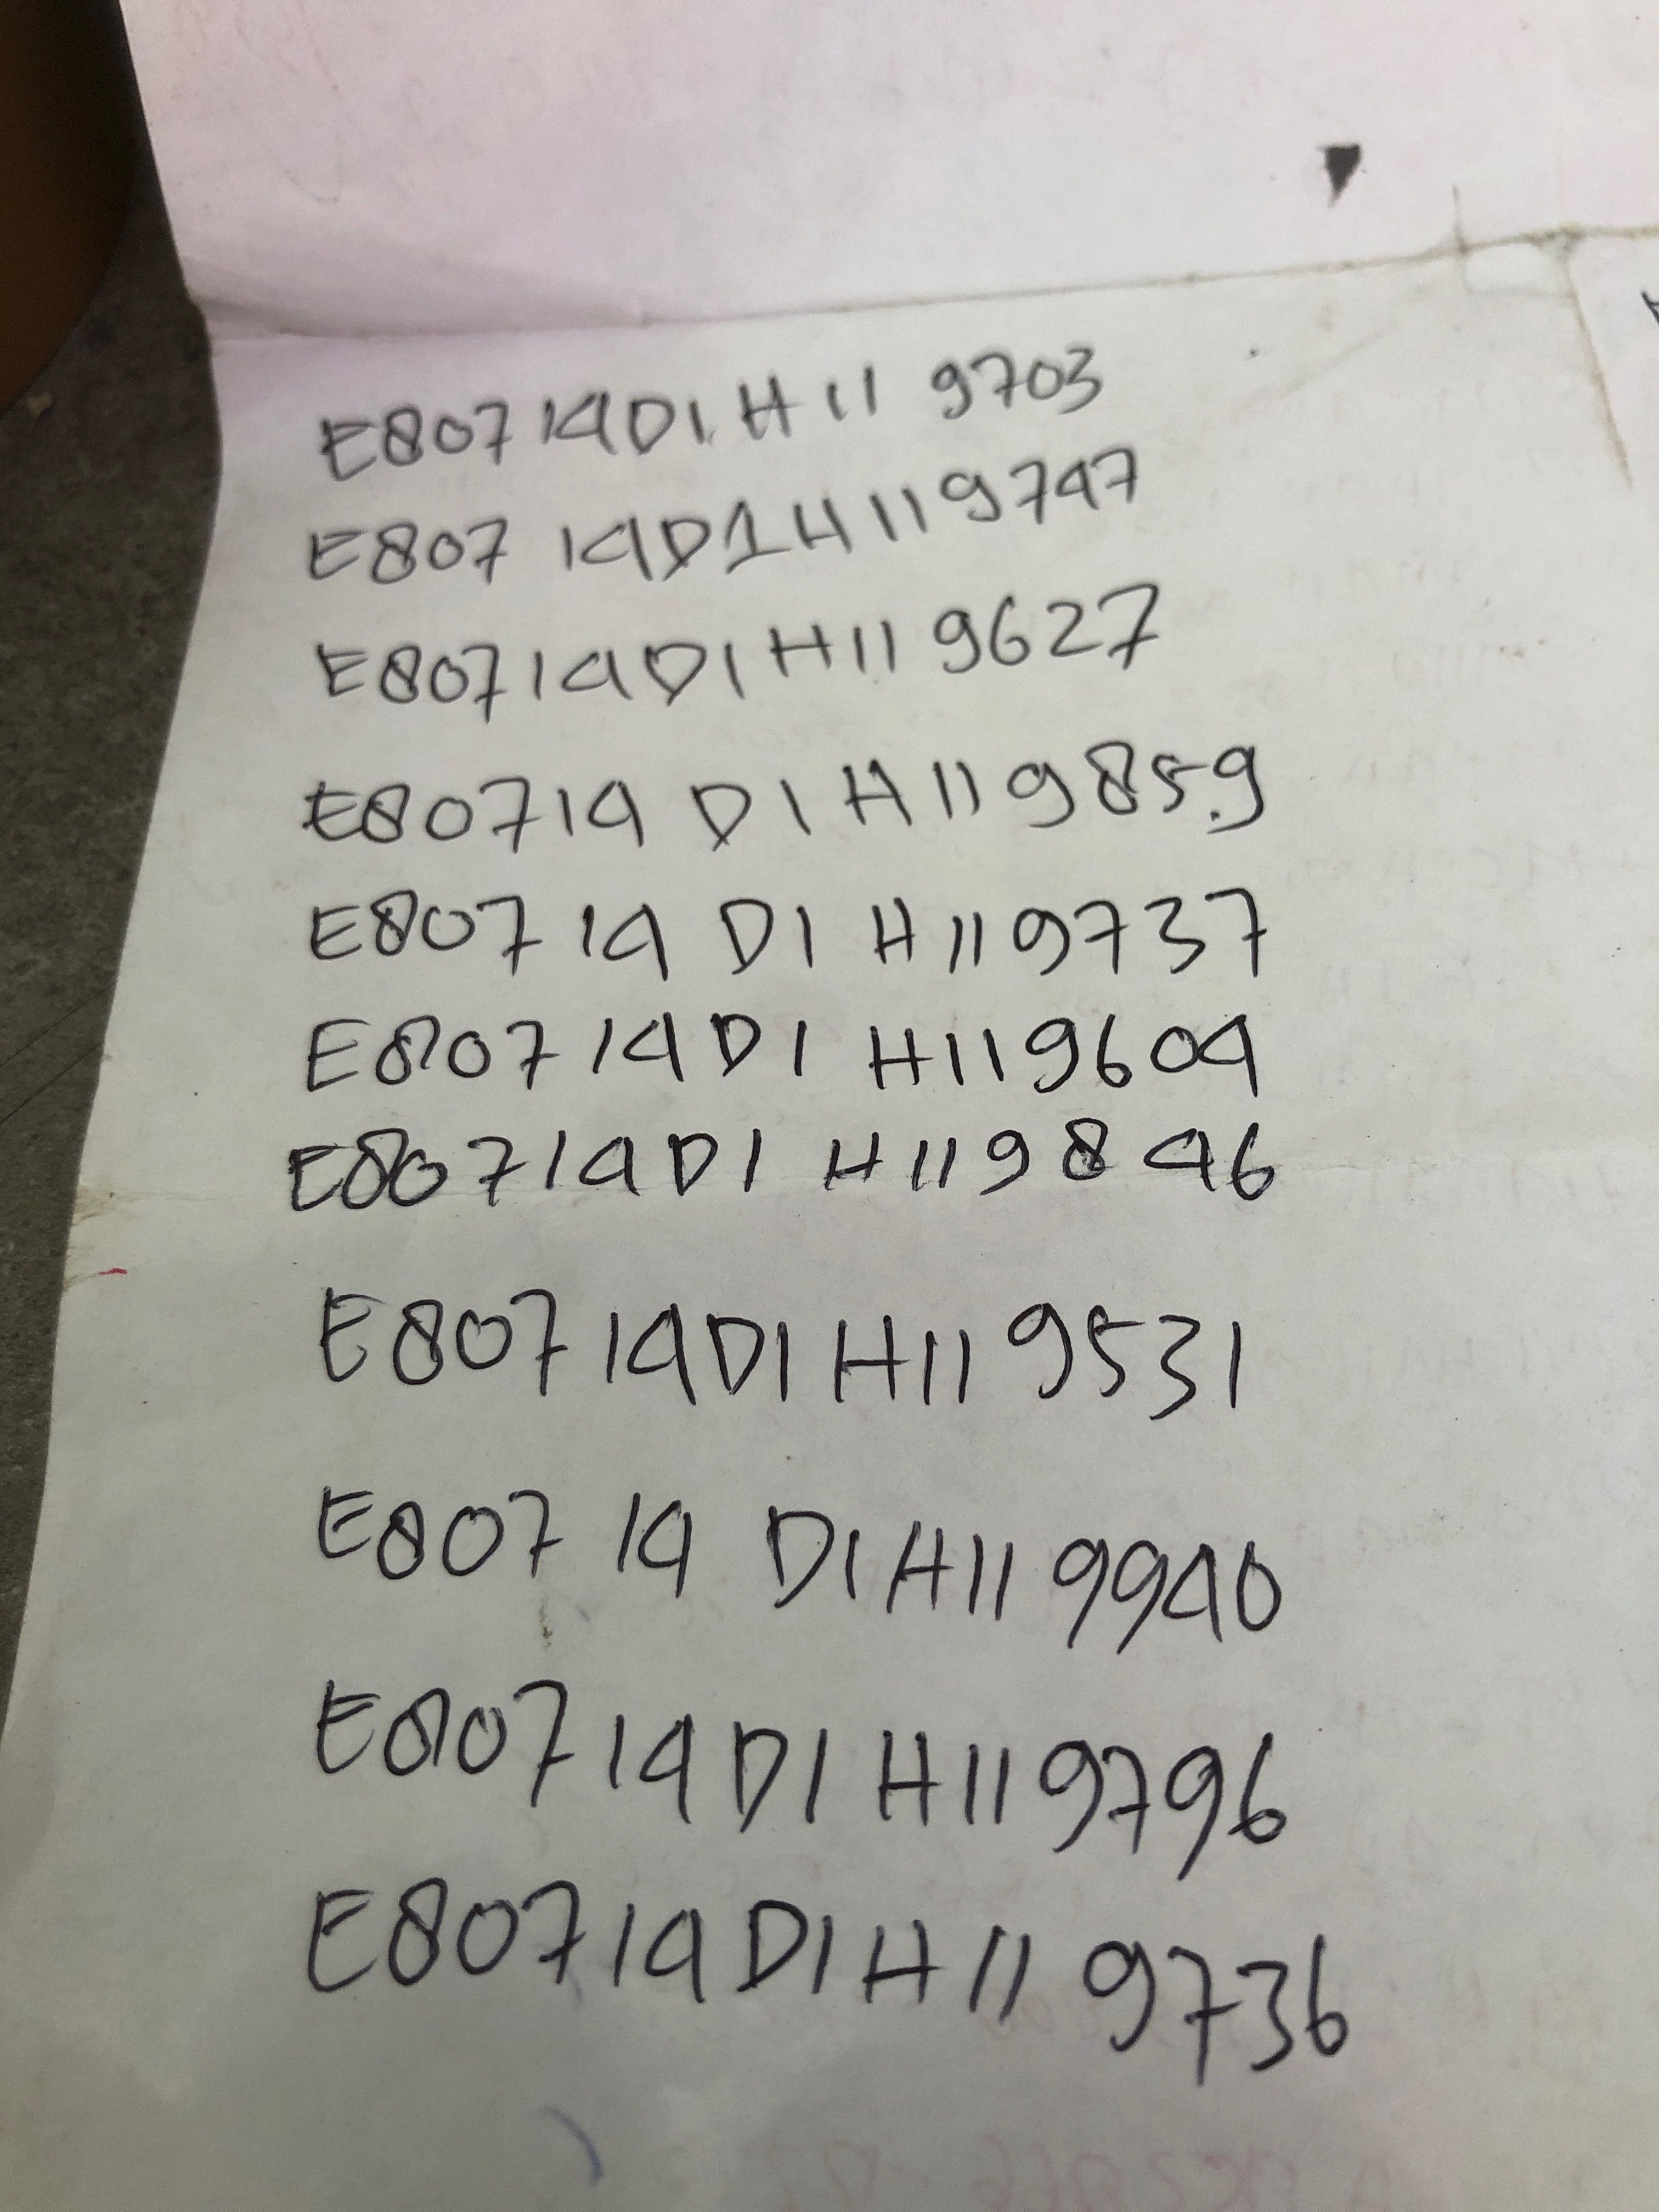 E80714D1H119703
E80714D1H119747
E80714D1H119627
E80714D1H119859
E80714D1H119737
E80714D1H119604
E80714D1H119846
E80714D1H119531
E80714D1H119940
E80714D1H119796
E80714D1H119736